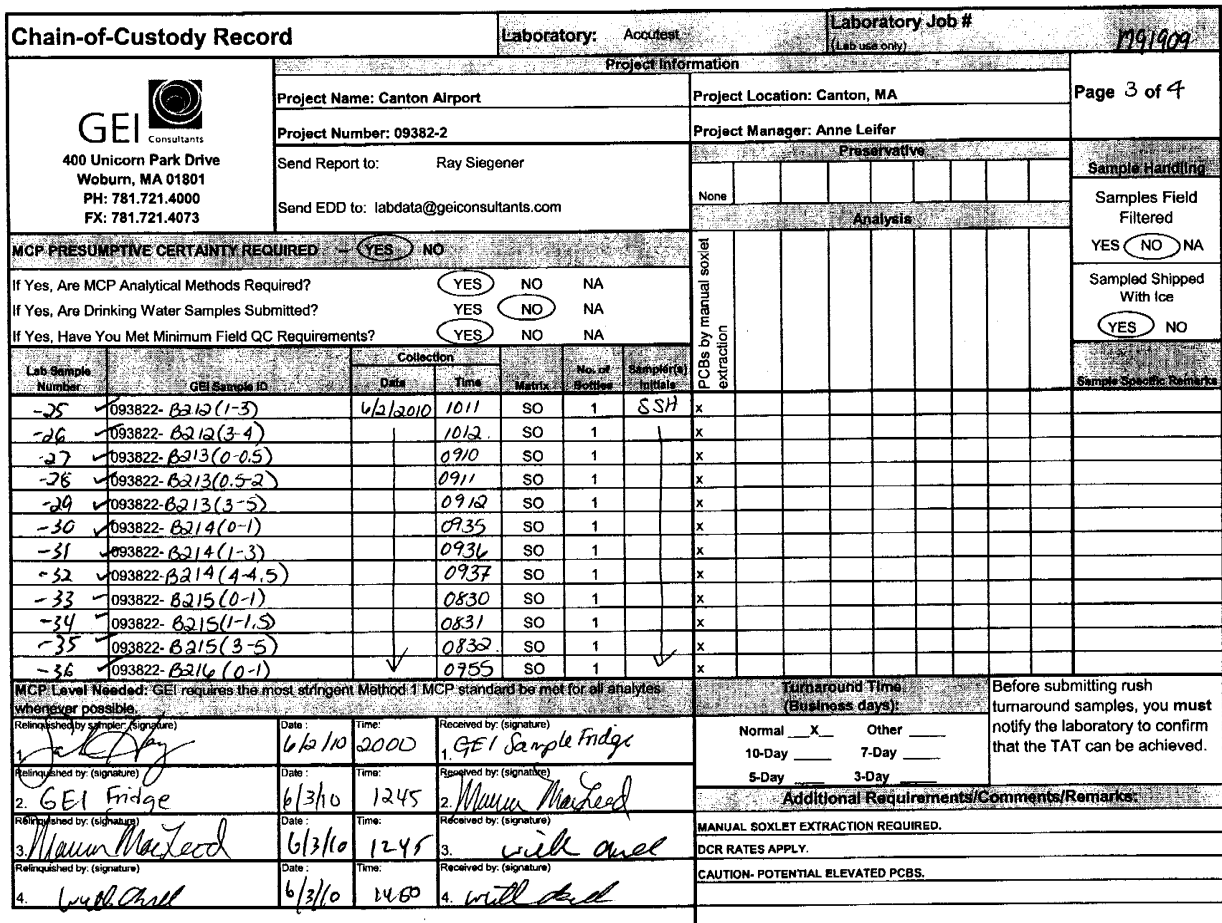 Chain-of-Custody Record
Laboratory: Accutest
Laboratory Job #
(Lab use only)
M91909
Project Information
GEI Consultants
400 Unicorn Park Drive
Woburn, MA 01801
PH: 781.721.4000
FX: 781.721.4073
Project Name: Canton Airport
Project Location: Canton, MA
Page 3 of 4
Project Number: 09382-2
Project Manager: Anne Leifer
Send Report to: Ray Siegener
Send EDD to: labdata@geiconsultants.com
Preservative
None
Analysis
PCBs by manual soxlet extraction
Sample Handling
Samples Field Filtered
YES NO NA
Sampled Shipped With Ice
YES NO
Sample Specific Remarks
MCP PRESUMPTIVE CERTAINTY REQUIRED - YES NO
If Yes, Are MCP Analytical Methods Required? YES NO NA
If Yes, Are Drinking Water Samples Submitted? YES NO NA
If Yes, Have You Met Minimum Field QC Requirements? YES NO NA
Collection
Lab Sample Number GEI Sample ID Date Time Matrix No. of Bottles Sampler(s) Initials
-25 093822- B212(1-3) 6/2/2010 1011 SO 1 SSH x
-26 093822- B212(3-4) 1012 SO 1 x
-27 093822- B213(0-0.5) 0910 SO 1 x
-28 093822- B213(0.5-2) 0911 SO 1 x
-29 093822- B213(3-5) 0912 SO 1 x
-30 093822- B214(0-1) 0935 SO 1 x
-31 093822- B214(1-3) 0936 SO 1 x
-32 093822- B214(4-4.5) 0937 SO 1 x
-33 093822- B215(0-1) 0830 SO 1 x
-34 093822- B215(1-1.5) 0831 SO 1 x
-35 093822- B215(3-5) 0832 SO 1 x
-36 093822- B216(0-1) 0755 SO 1 x
MCP Level Needed: GEI requires the most stringent Method 1 MCP standard be met for all analytes
whenever possible.
Relinquished by sampler: (signature) Date: Time: Received by: (signature)
1. 6/2/10 2000 1. GEI Sample Fridge
Relinquished by: (signature) Date: Time: Received by: (signature)
2. GEI Fridge 6/3/10 1245 2. Mauun MacLeod
Relinquished by: (signature) Date: Time: Received by: (signature)
3. Mauun MacLeod 6/3/10 1245 3.
Relinquished by: (signature) Date: Time: Received by: (signature)
4. 6/3/10 4.
Turnaround Time
(Business days):
Normal X Other
10-Day 7-Day
5-Day 3-Day
Before submitting rush
turnaround samples, you must
notify the laboratory to confirm
that the TAT can be achieved.
Additional Requirements/Comments/Remarks:
MANUAL SOXLET EXTRACTION REQUIRED.
DCR RATES APPLY.
CAUTION- POTENTIAL ELEVATED PCBS.